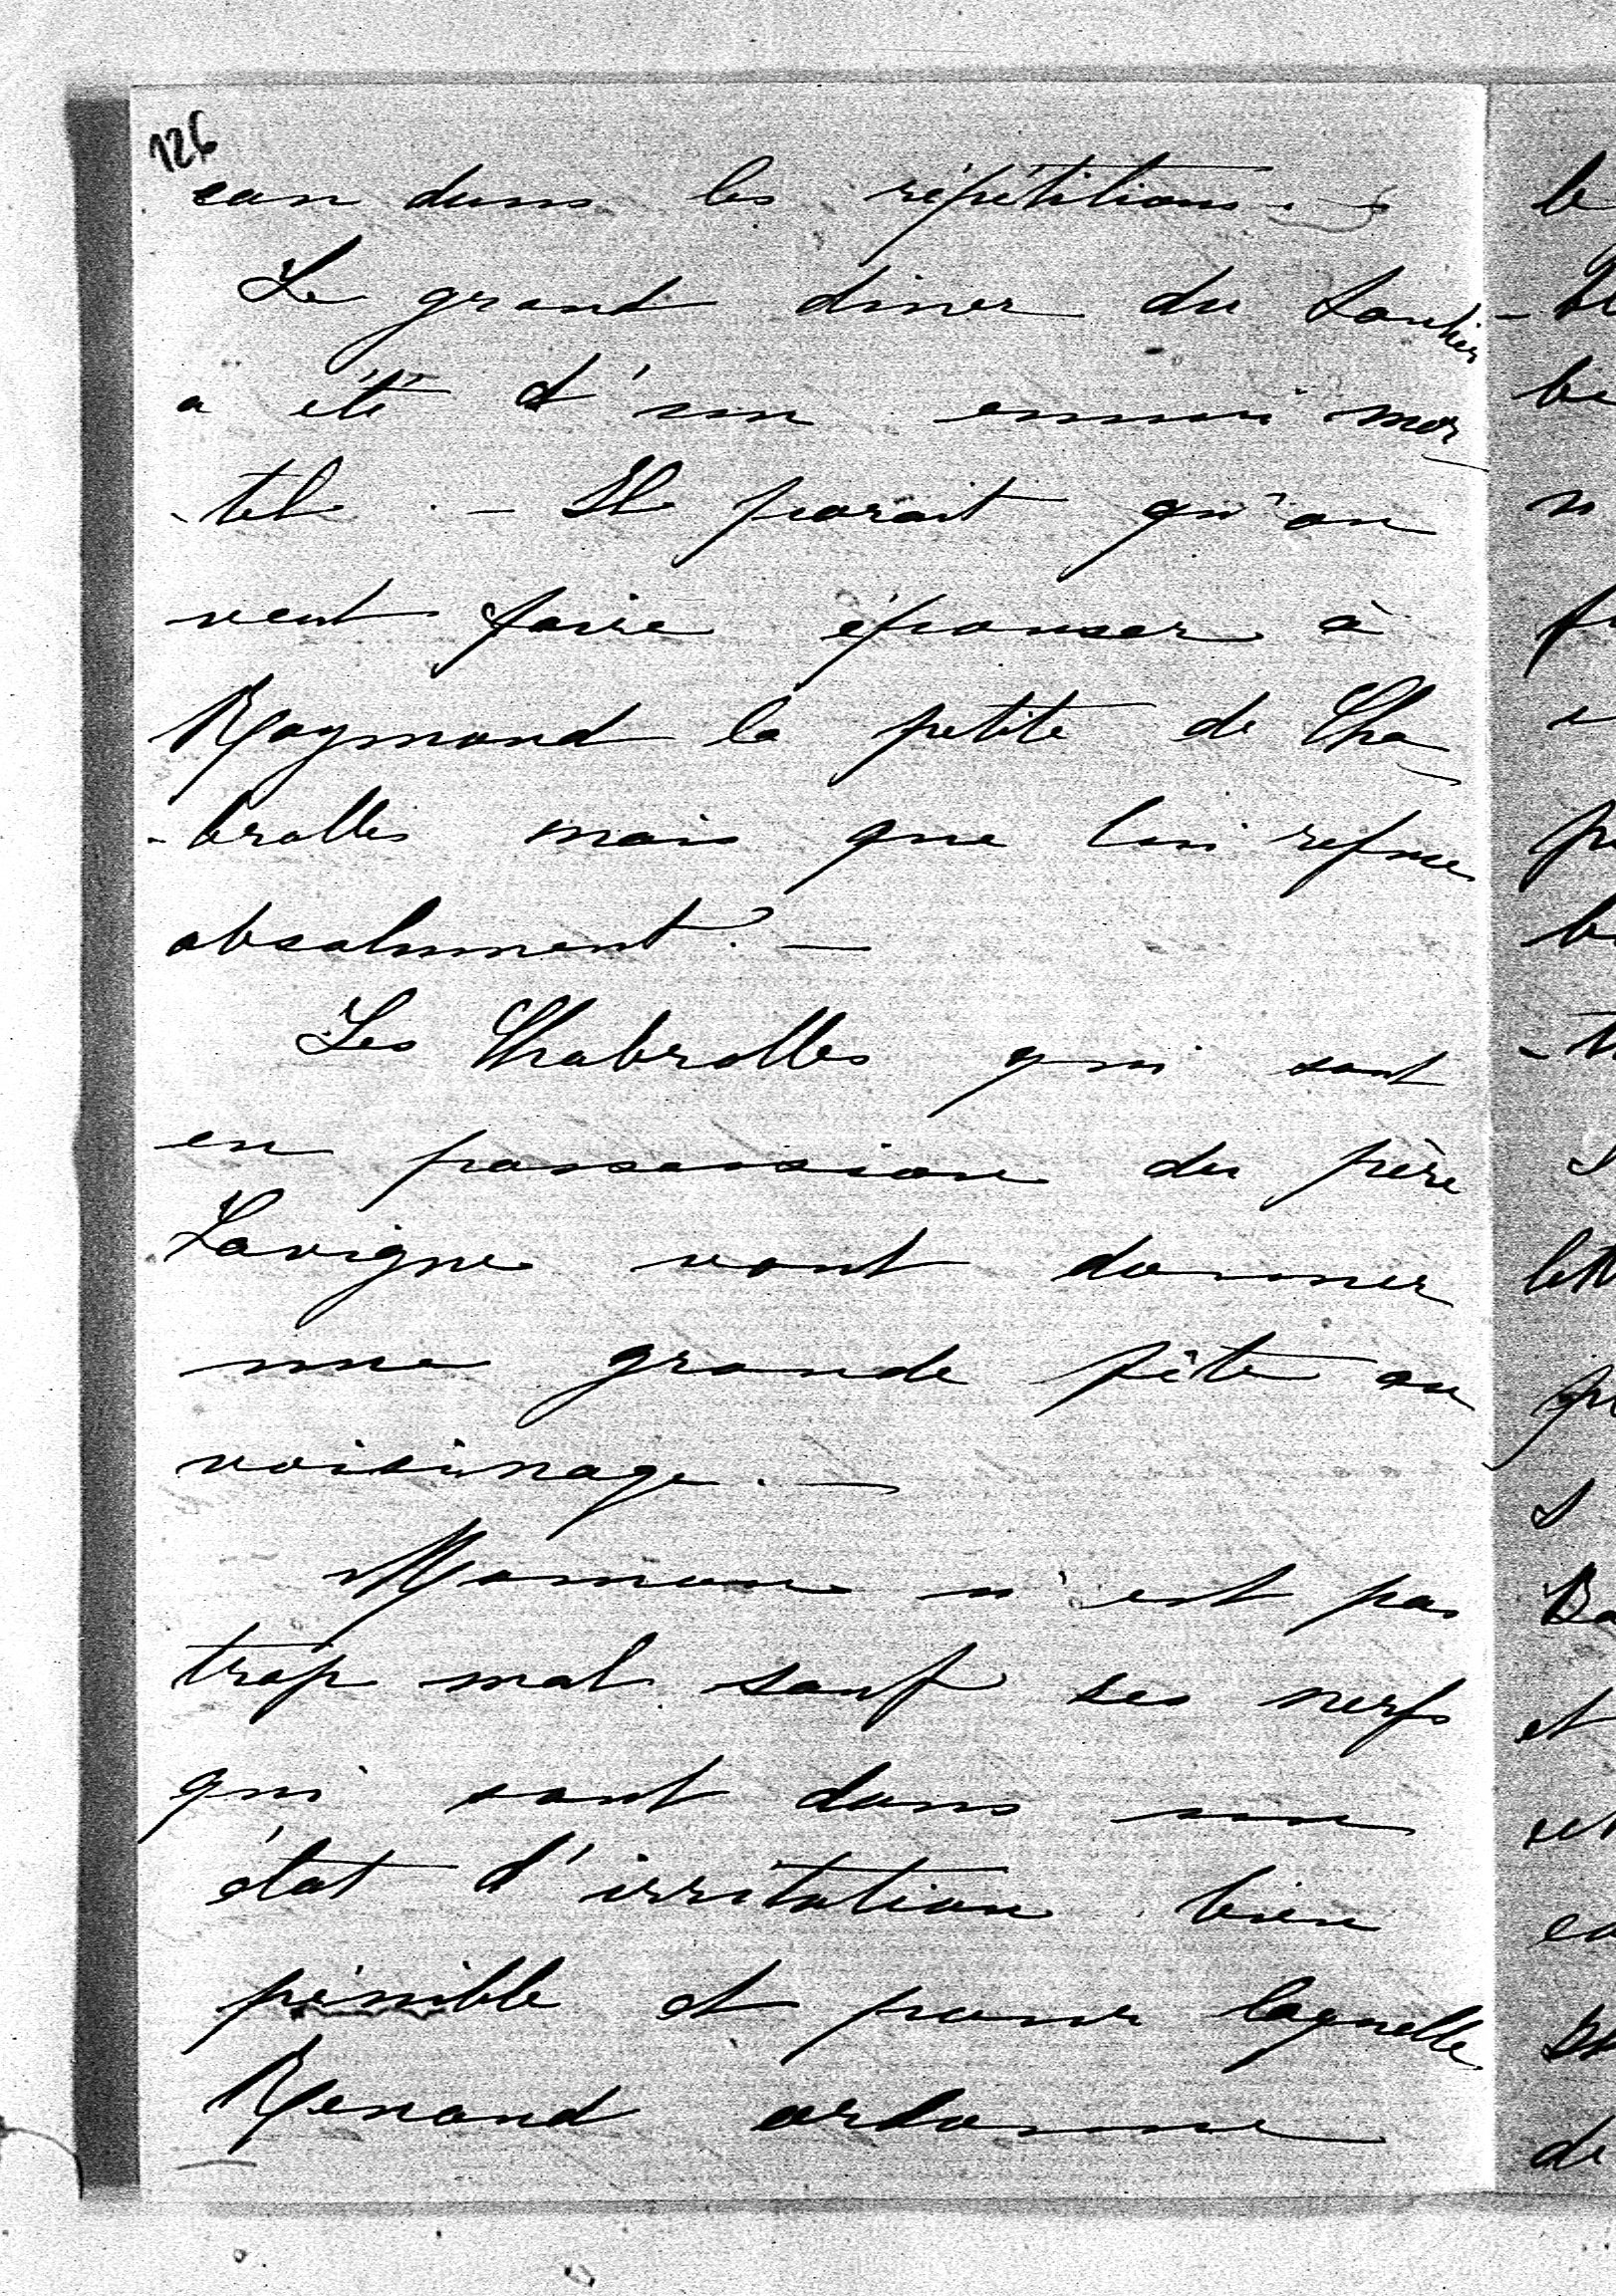 126
can dans les répétitions. -
Le grand diner du Soulier
a été d'un ennui mor
-tel. - Il parait qu'on
veut faire épouser à
Raymond la petite de Cha
-brolles mais que lui refuse
absolument. -
Les Chabrolles qui sont
en possession du père
Lavigne vont donner
une grande fête au
voisinage. -
Maman n'est pas
trop mal sauf ses nerfs
qui sont dans un
état d'irritation bien
pénible et pour laquelle
Renaud ordonne